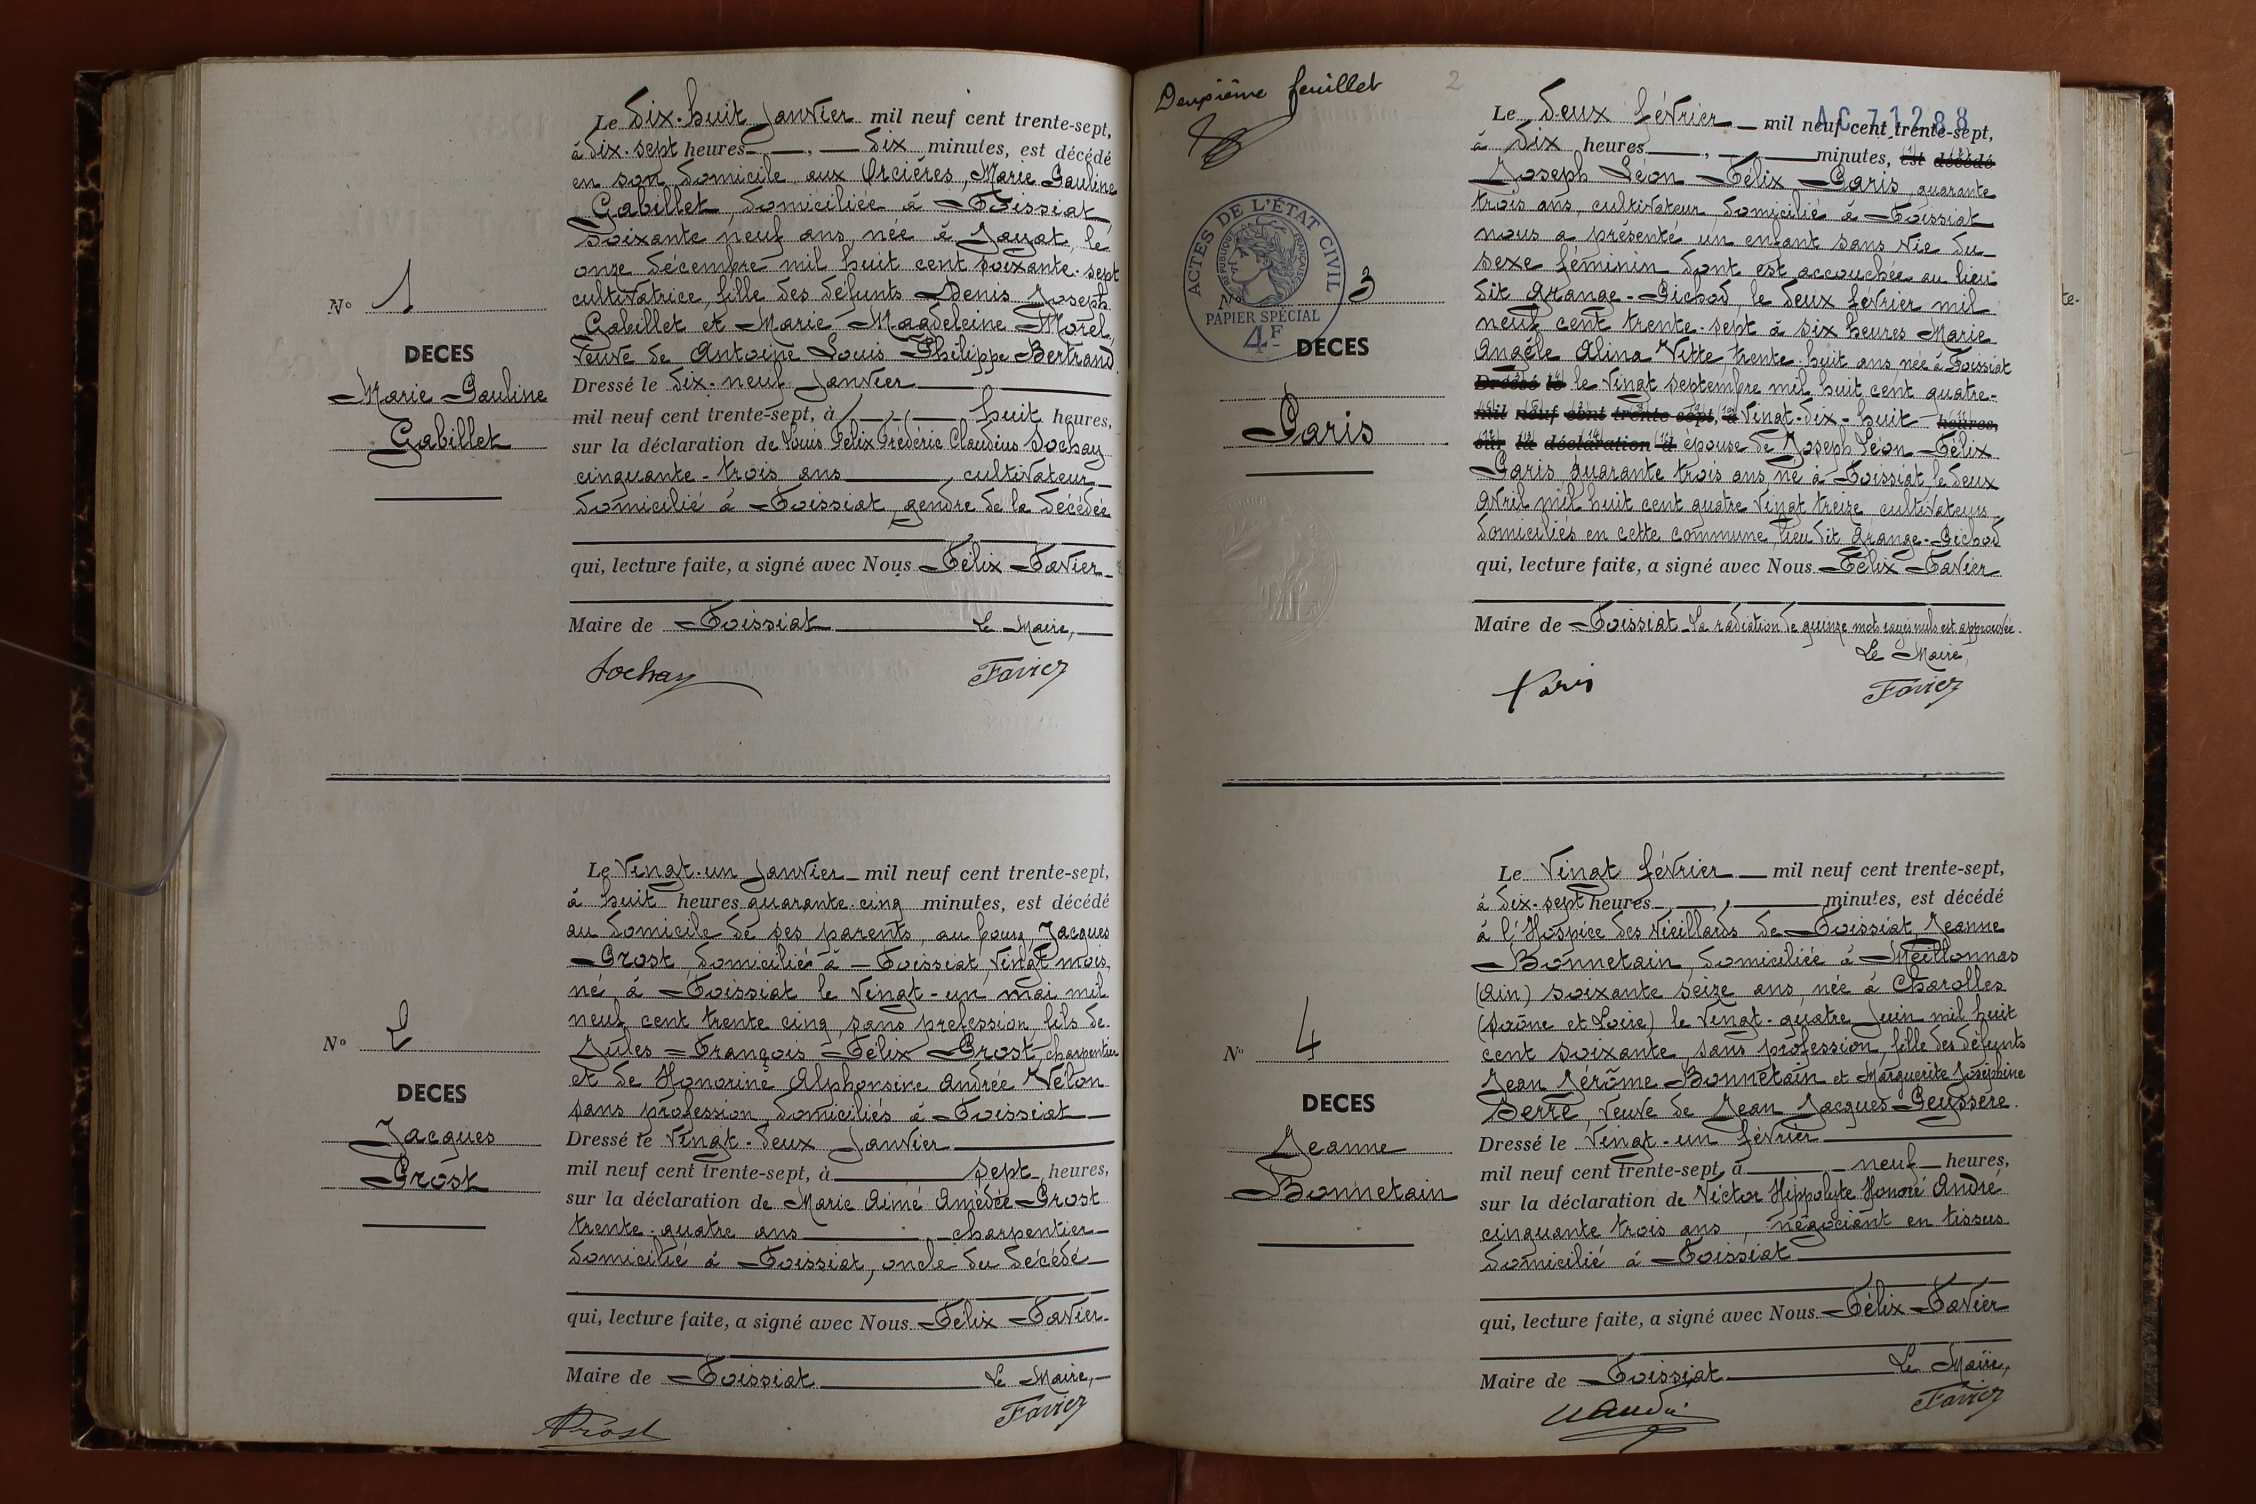 Le dix-huit janvier mil neuf cent trente-sept,
à dix-sept heures dix minutes, est décédé
en son domicile aux Orcières, Marie Pauline
Gabillet, domiciliée à Foissiat,
soixante neuf ans, née à Jayat, le
onze décembre mil huit cent soixante-sept
cultivatrice, fille des défunts Denis Joseph
Gabillet et Marie Magdeleine Morel,
veuve de Antoine Louis Philippe Bertrand
Nº 1
DECES
Marie Pauline
Gabillet
Dressé le dix-neuf janvier
mil neuf cent trente-sept, à huit heures,
sur la déclaration de Louis Félix Frédéric Claudius Sochay
cinquante-trois ans cultivateur
domicilié à Foissiat, gendre de la décédée
qui, lecture faite, a signé avec Nous Félix Favier
Maire de Foissiat Le Maire,
Sochay Favier
Le vingt-un janvier mil neuf cent trente-sept,
à huit heures quarante-cinq minutes, est décédé
au domicile de ses parents, au bourg, Jacques
Prost, domicilié à Foissiat, vingt mois,
né à Foissiat le vingt-un mai mil
neuf cent trente cinq, sans profession, fils de
Jules François Félix Prost, charpentier
et de Honorine Alphonsine Andrée Velon
sans profession, domiciliés à Foissiat
Nº 2
DECES
Jacques
Prost
Dressé le vingt-deux janvier
mil neuf cent trente-sept, à sept heures,
sur la déclaration de Marie Aimé Amédée Prost
trente-quatre ans charpentier
domicilié à Foissiat, oncle du décédé
qui, lecture faite, a signé avec Nous Félix Favier
Maire de Foissiat Le Maire,
Prost Favier
Deuxième feuillet 2
AC 71288
Le deux février mil neuf cent trente-sept,
à dix heures, minutes, est décédé
Joseph Léon Félix Paris, quarante
trois ans, cultivateur domicilié à Foissiat
nous a présenté un enfant sans vie du
sexe féminin dont est accouchée au lieu
dit Grange-Pichod, le deux février mil
neuf cent trente-sept à six heures Marie
Angèle Alina Vitte, trente-huit ans née à Foissiat
Dressé le le vingt septembre mil huit cent quatre-
mil neuf cent trente-sept, à vingt-dix-huit heures,
sur la déclaration d épouse de Joseph Léon Félix
Paris, quarante trois ans, né à Foissiat, le deux
avril mil huit cent quatre vingt treize cultivateurs
domiciliés en cette commune, lieu dit Grange-Pichod
ACTES DE L'ÉTAT CIVIL
RÉPUBLIQUE FRANÇAISE
PAPIER SPÉCIAL
4F
Nº 3
DECES
Paris
qui, lecture faite, a signé avec Nous Félix Favier
Maire de Foissiat La radiation de quinze mots rayés nuls est approuvée.
Le Maire,
Paris Favier
Le vingt février mil neuf cent trente-sept,
à dix-sept heures, minutes, est décédé
à l'Hospice des Vieillards de Foissiat, Jeanne
Bonnetain, domiciliée à Meillonnas
(Ain) soixante seize ans, née à Charolles
(Saône et Loire) le vingt-quatre juin mil huit
cent soixante, sans profession, fille des défunts
Jean Jérôme Bonnetain et Marguerite Joséphine
Serre, veuve de Jean Jacques Peyssere.
Nº 4
DECES
Jeanne
Bonnetain
Dressé le vingt-un février
mil neuf cent trente-sept, à neuf heures,
sur la déclaration de Victor Hippolyte Honoré André
cinquante trois ans, négociant en tissus
domicilié à Foissiat
qui, lecture faite, a signé avec Nous Félix Favier
Maire de Foissiat Le Maire,
Favier